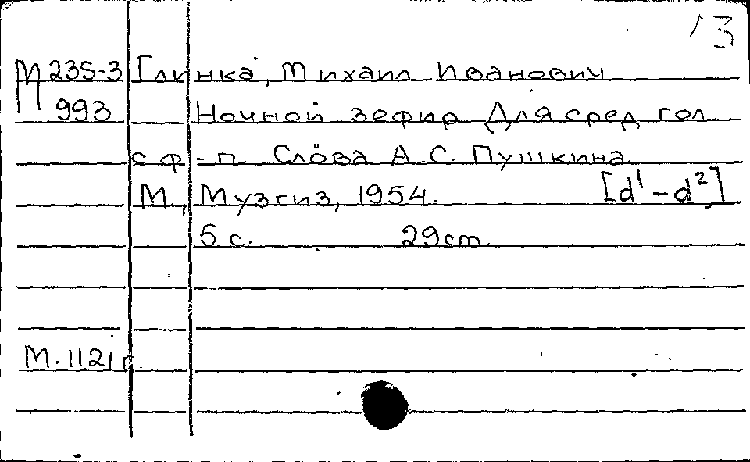 13
М 235-3 Глинка, Михаил Иванович
993 Ночной зефир Для сред гол
с ф-п. Слова А. С. Пушкина
М., Музгиз, 1954. [d¹-d²]
5 с. 29 cm.
М. 1121 г